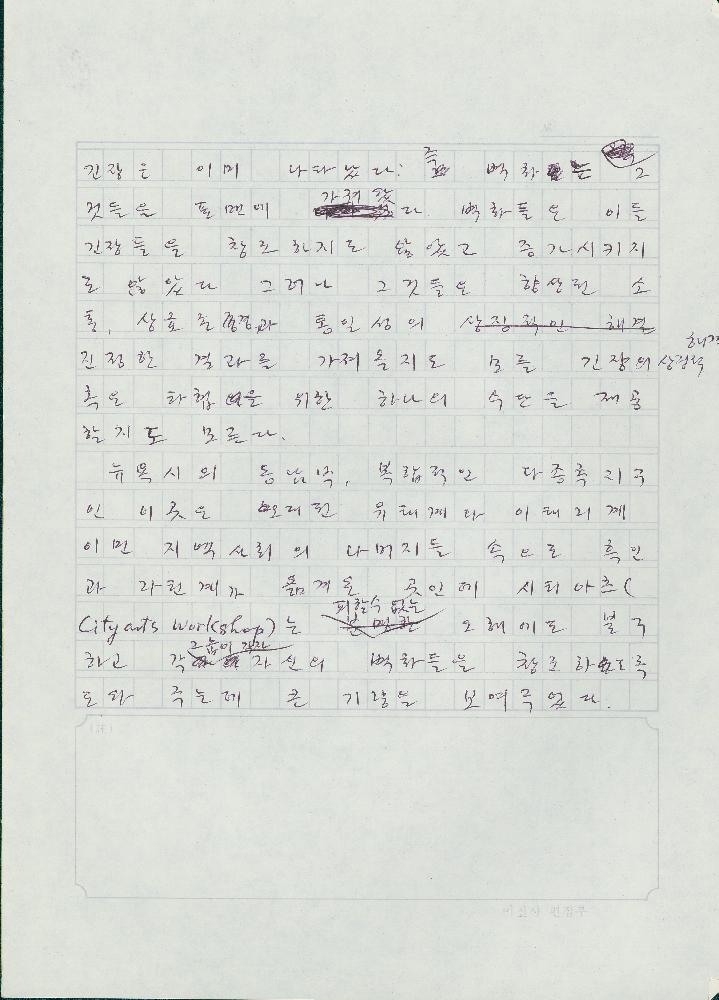 긴장은 이미 나타났다: 즉 벽화는 그
것들을 표면에 가져왔다. 벽화들은 이들
긴장들을 창조하지도 않았고 증가시키지
도 않았다 그러나 그것들은 향상된 소
통, 상호존경과 통일성의 상징적인 해결
진정한 결과를 가져올지도 모를 긴장의 상징적 해결
혹은 화합을 위한 하나의 수단을 제공
할지도 모른다.
뉴욕시의 동남부, 복합적인 다종족지구
인 이곳은 오래된 유태계와 이태리계
이민 지역사회의 나머지들 속으로 흑인
과 라틴계가 옮겨온 곳인데 시티아츠(
Cityarts workshop)는 피할수 없는 오해에도 불구
하고 각 그룹이 각자 자신의 벽화들을 창조하도록
도와 주는데 큰 기량을 보여주었다.
(註)